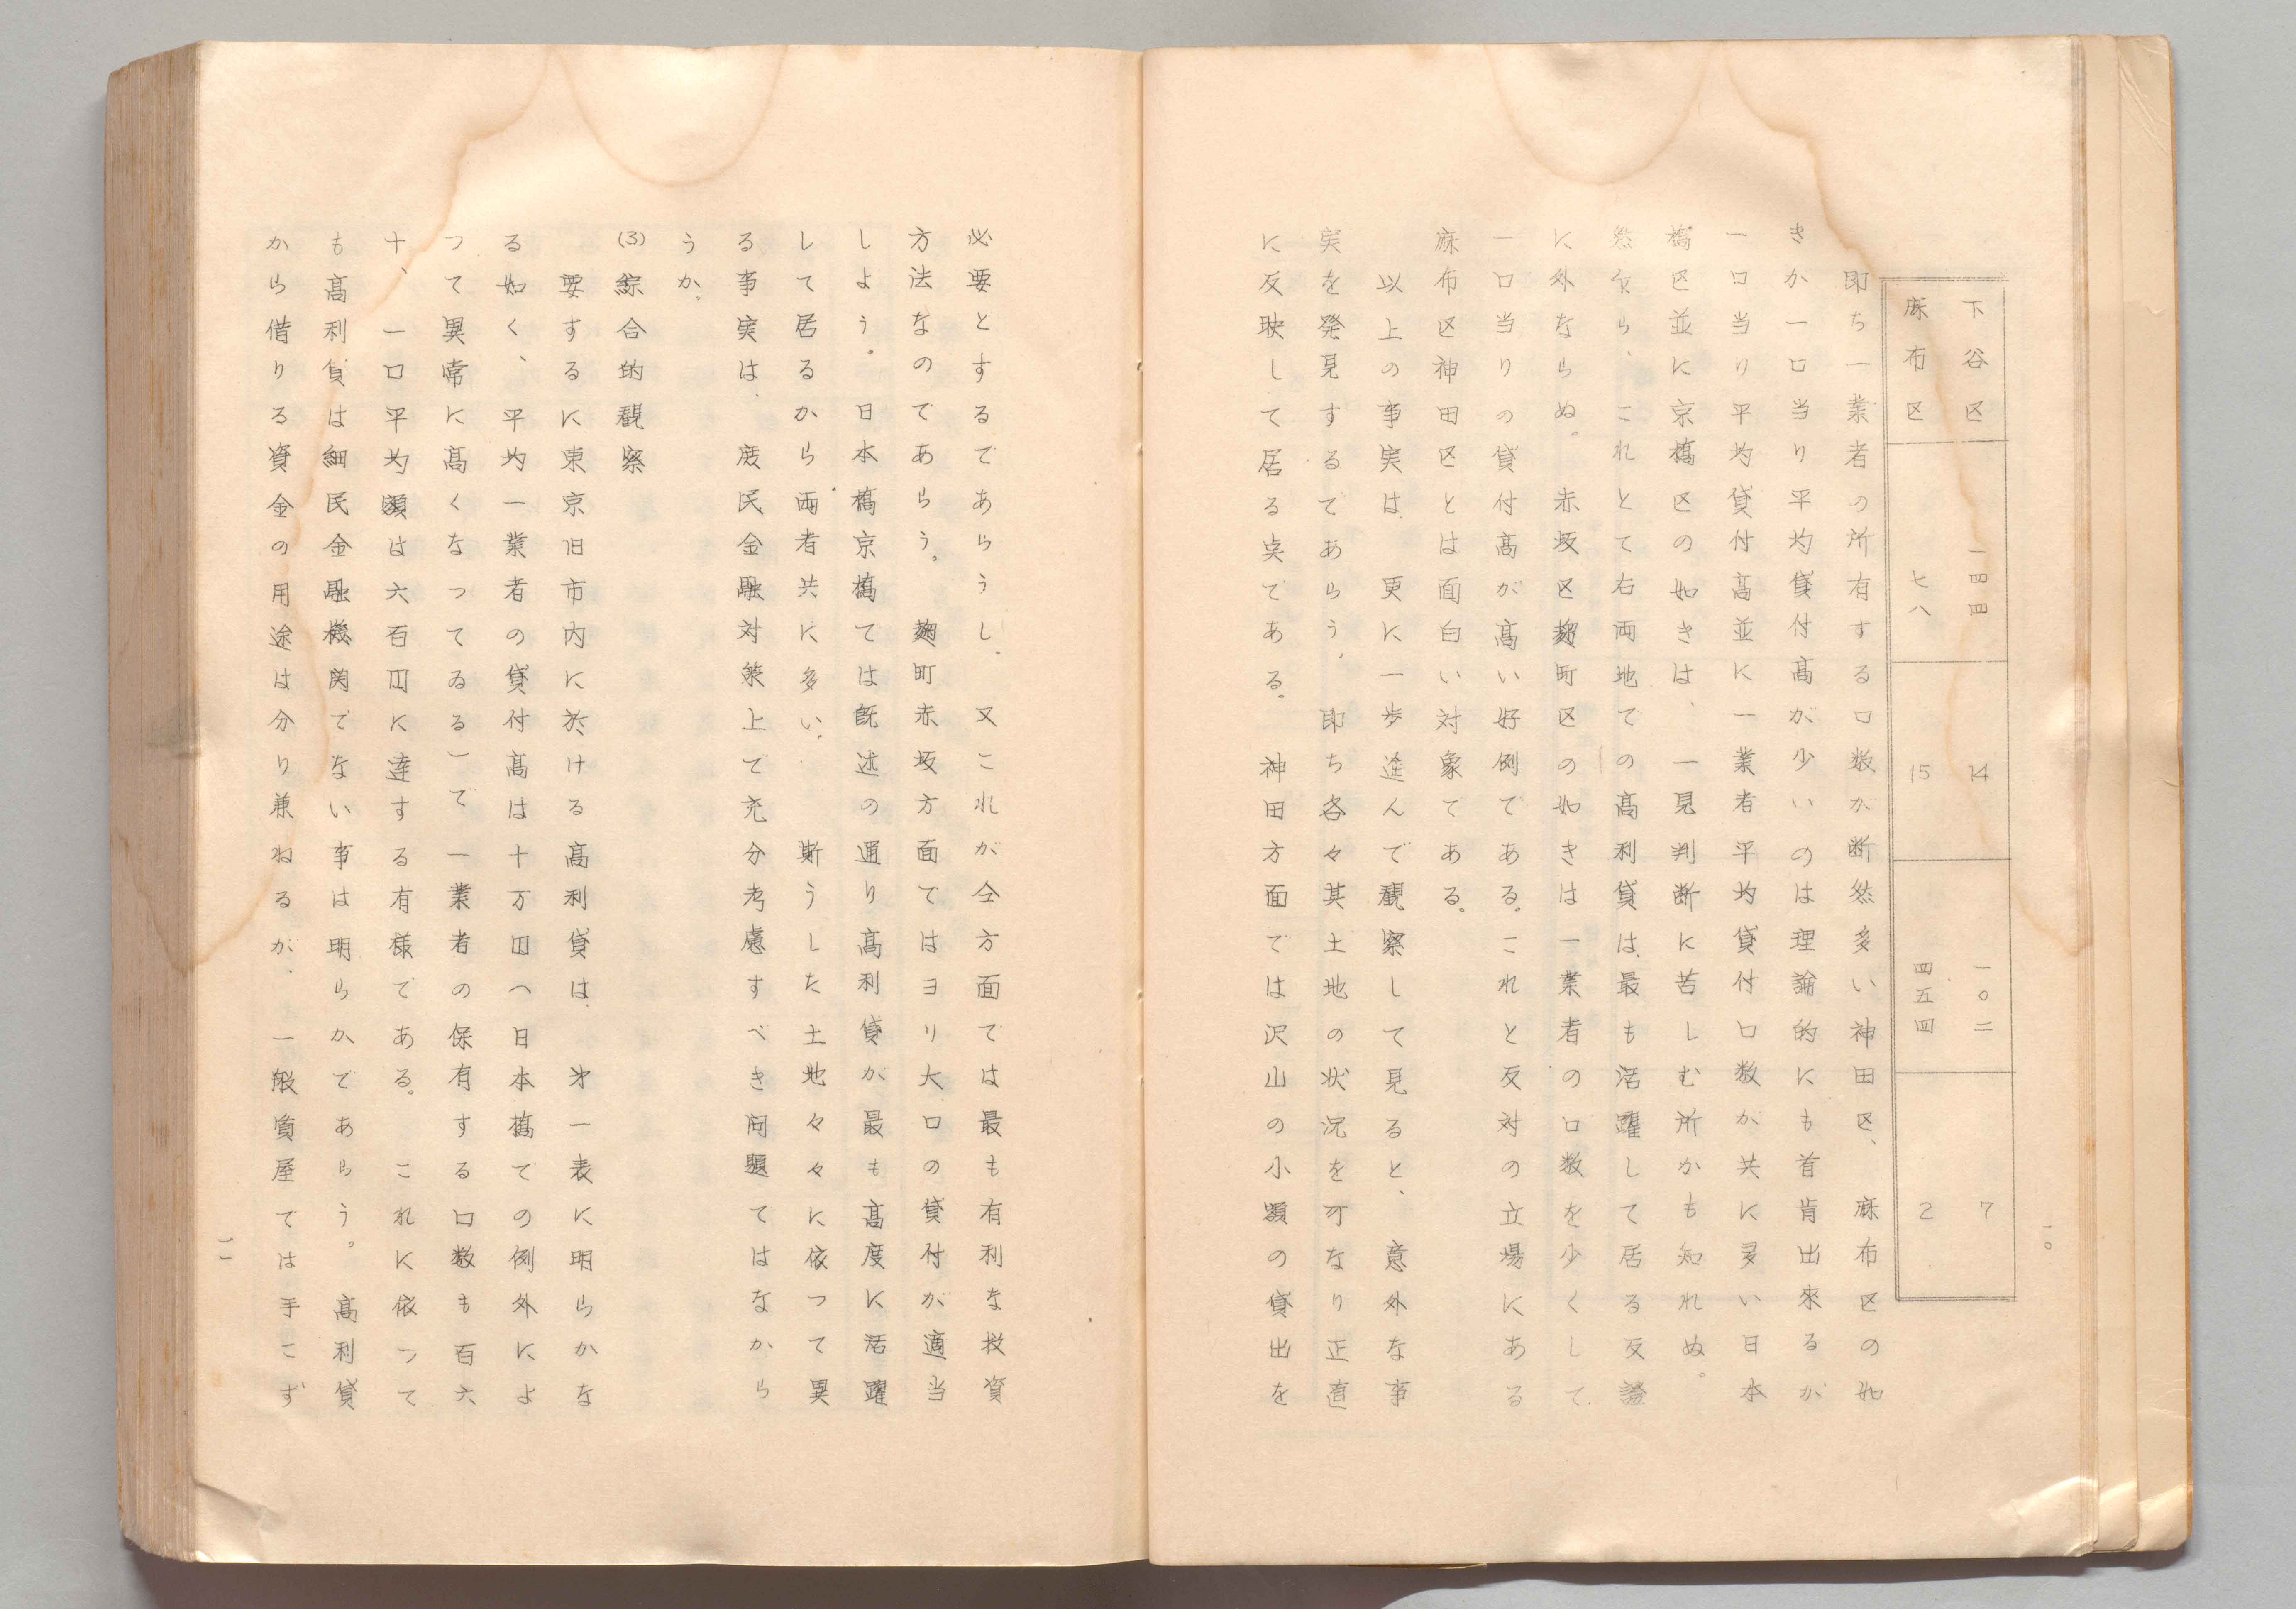 下谷区 一四四 14 一〇二 7
麻布区 七八 15 四五四 2
即ち一業者の所有する口数か断然多い神田区、麻布区の如
きか一口当り平均貸付高が少いのは理論的にも首肯出來るが
一口当り平均貸付高並に一業者平均貸付口数か共に多い日本
橋区並に京橋区の如きは、一見判断に苦しむ所かも知れぬ。
然し乍ら、これとて右両地ての高利貸は最も活躍して居る反證
に外ならぬ。赤坂区麹町区の如きは一業者の口数を少くして、
一口当りの貸付高が高い好例である。これと反対の立場にある
麻布区神田区とは面白い対象てある。
以上の事実は、更に一歩進んで観察して見ると、意外な事
実を発見するであらう。即ち各々其土地の状況を可なり正直
に反映して居る点てある。神田方面では沢山の小額の貸出を
一〇
必要とするであらうし、又これが仝方面では最も有利な投資
方法なのであらう。麹町赤坂方面てはヨリ大口の貸付が適当
しよう。日本橋京橋ては既述の通り高利貸が最も高度に活躍
して居るから両者共に多い。斯うした土地々々に依つて異
る事実は、庶民金融対策上で充分考慮すべき問題てはなから
うか、
(3)綜合的観察
要するに東京旧市内に於ける高利貸は、㐧一表に明らかな
る如く、平均一業者の貸付高は十万円(日本橋での例外によ
つて異常に高くなつてゐる)で一業者の保有する口数も百六
十、一口平均額は六百円に達する有様である。これに依つて
も高利貸は細民金融機関でない事は明らかであらう。高利貸
から借りる資金の用途は分り兼ねるが、一般質屋ては手こず
一一